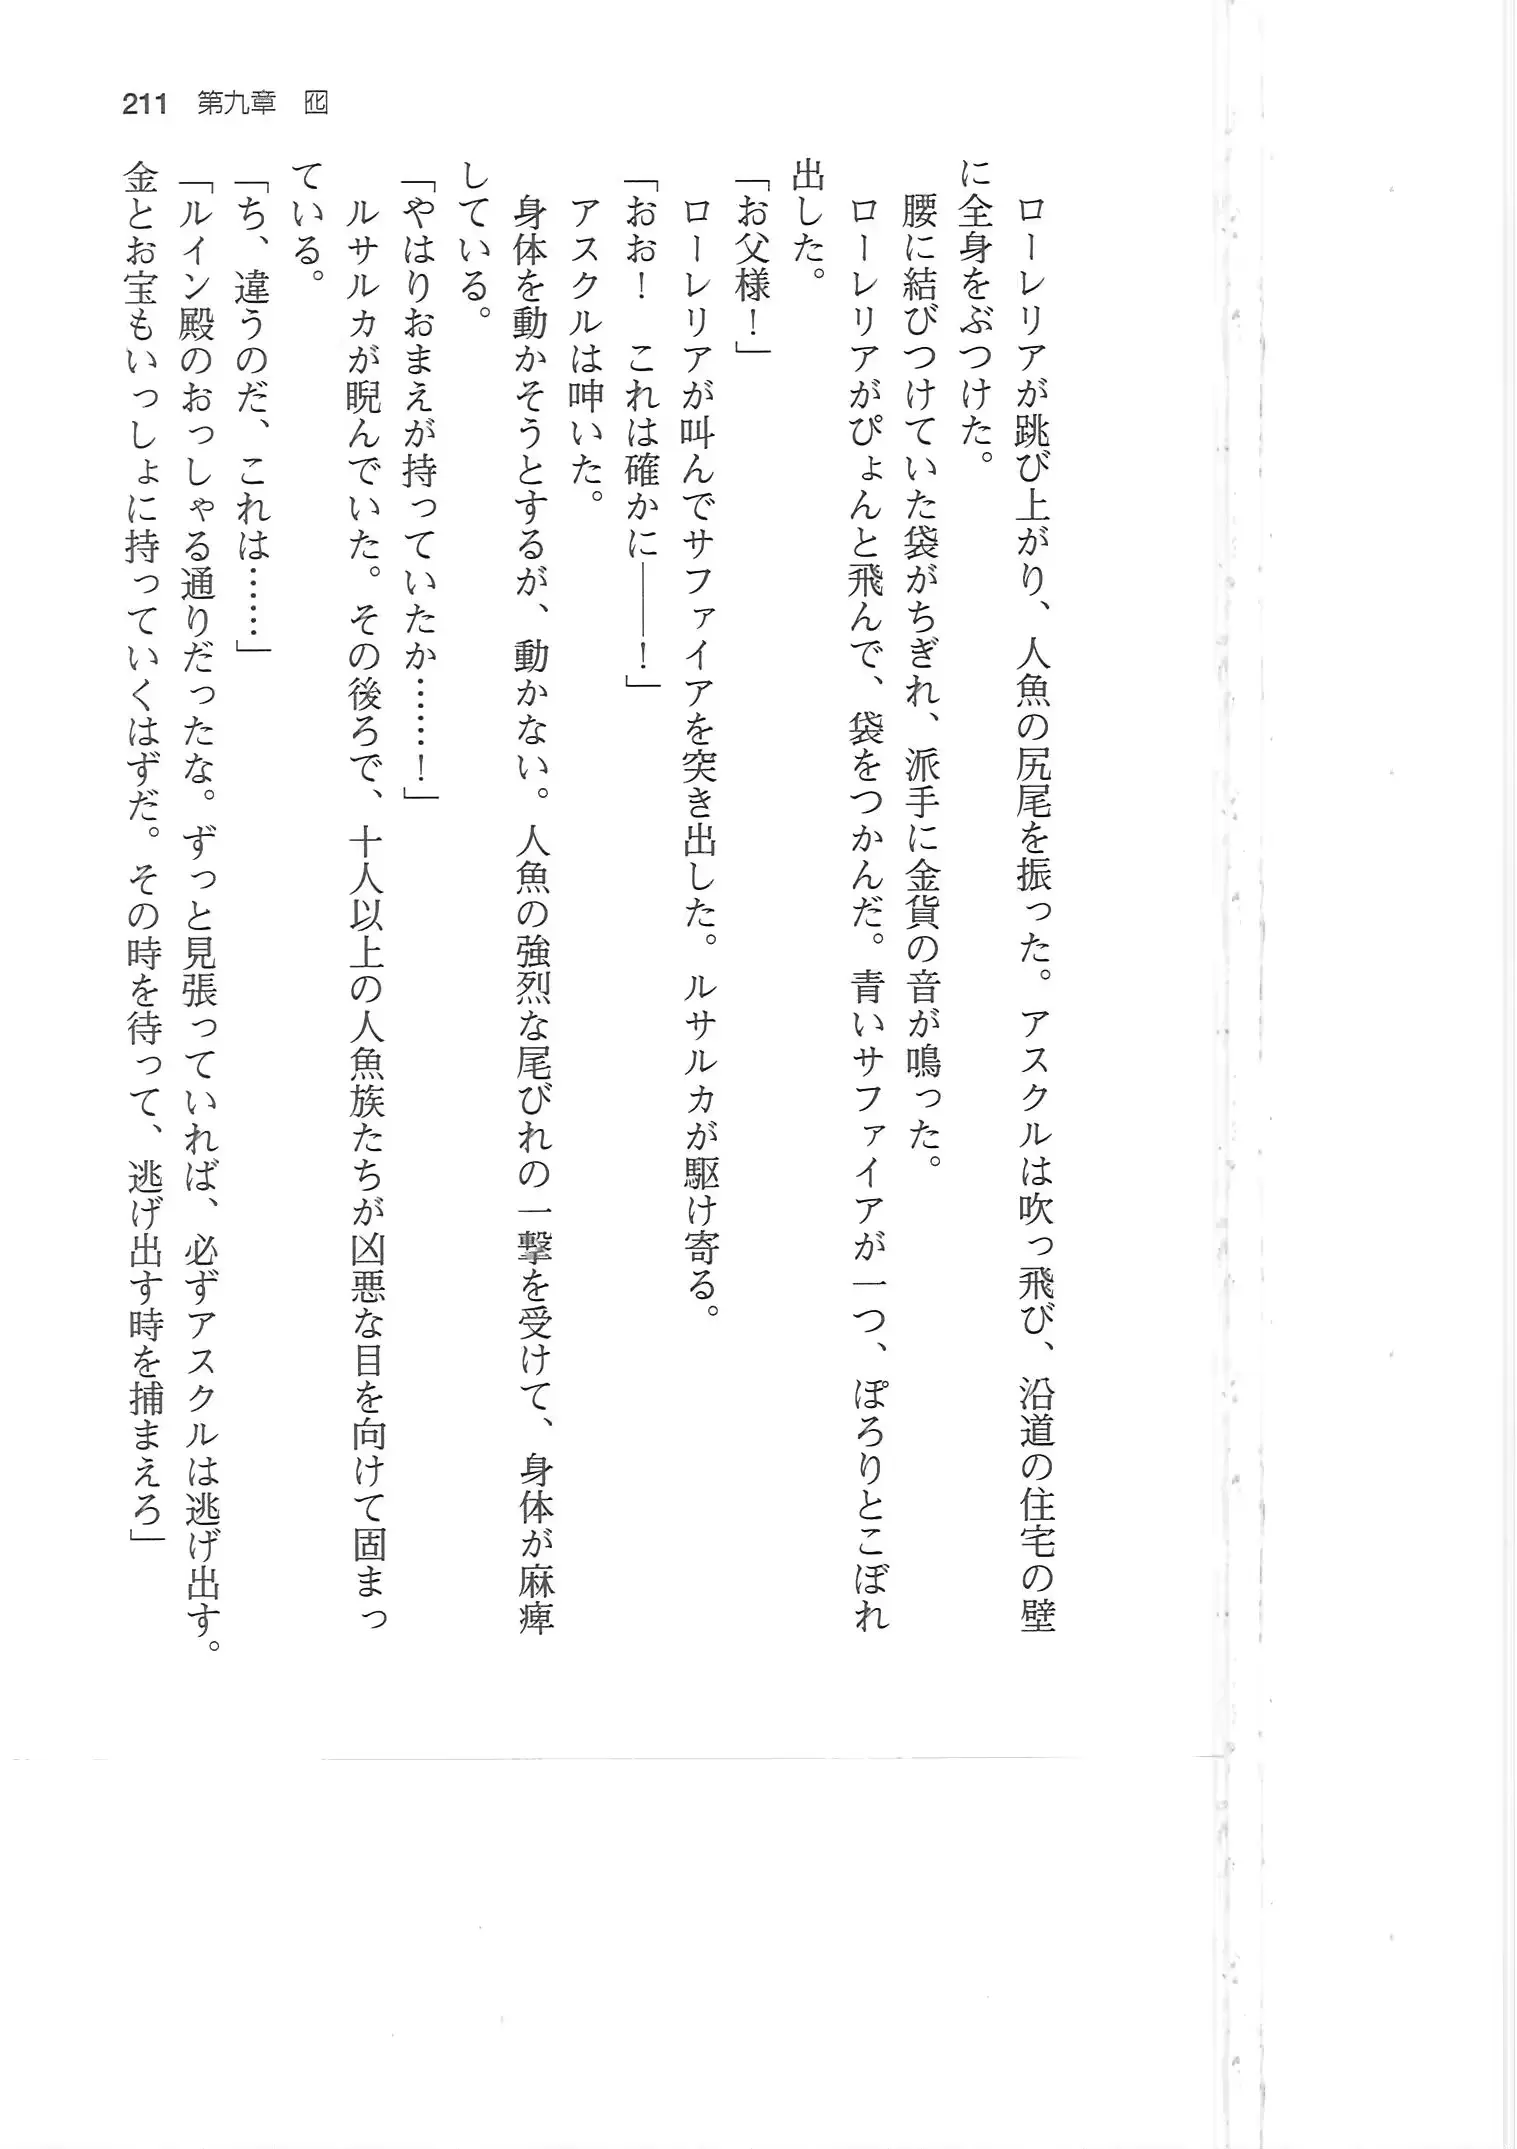 211　第九章　囮
　ローレリアが跳び上がり、人魚の尻尾を振った。アスクルは吹っ飛び、沿道の住宅の壁
に全身をぶつけた。
　腰に結びつけていた袋がちぎれ、派手に金貨の音が鳴った。
　ローレリアがぴょんと飛んで、袋をつかんだ。青いサファイアが一つ、ぽろりとこぼれ
出した。
「お父様！」
　ローレリアが叫んでサファイアを突き出した。ルサルカが駆け寄る。
「おお！　これは確かに――！」
　アスクルは呻いた。
　身体を動かそうとするが、動かない。人魚の強烈な尾びれの一撃を受けて、身体が麻痺
している。
「やはりおまえが持っていたか……！」
　ルサルカが睨んでいた。その後ろで、十人以上の人魚族たちが凶悪な目を向けて固まっ
ている。
「ち、違うのだ、これは……」
「ルイン殿のおっしゃる通りだったな。ずっと見張っていれば、必ずアスクルは逃げ出す。
金とお宝もいっしょに持っていくはずだ。その時を待って、逃げ出す時を捕まえろ」